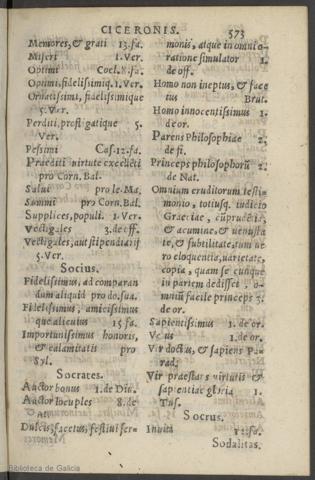 CICERONIS.
573
Memores, & grati 13. fa.
Miseri 1. Ver.
Optimi Coel. 8. fa.
Optimi, fidelissimiq. 1. Ver.
Ornatissimi, fidelissimique
5. Ver.
Perditi, profligatique 5.
Ver.
Pessimi Cas. 12. fa.
Praediti virtute excellēti
pro Corn. Bal.
Salui pro le. Ma.
Summi pro Corn. Bal.
Supplices, populi. 1. Ver.
Vectigales 3. de off.
Vectigales, aut stipendiarij
5. Ver.
Socius.
Fidelissimus, ad comparan
dum aliquid pro do. sua.
Fidelissimus, amicissimus
que alicuius 15 fa.
Importunissimus honoris,
& calamitatis pro
Syl.
Socrates.
Auctor bonus 1. de Diu.
Auctor locuples 8. de
Att.
Dulcis, facetus, festiui ser-
monis, atque in omni o-
ratione simulator 1.
de off.
Homo non ineptus, & face
tus Brut.
Homo innocentissimus 1.
de or.
Parens Philosophiae 2.
de fi.
Princeps philosophorū 2.
de Nat.
Omnium eruditorum testi-
monio, totiusq. iudicio
Graeciae, cùm prudētia,
& acumine, & uenusta
te, & subtilitate, tum ue
ro eloquentia, uarietate,
copia, quam se cunque
in partem dedisset, o-
mniū facile princeps 3.
de or.
Sapientissimus 1. de or.
1. de or.
Vir doctus, & sapiens Pa-
rad.
Vir praestans uirtutis &
sapientiae gloria 1.
Tus.
Socrus.
Inuita fa.
Sodalitas.
Biblioteca de Galicia